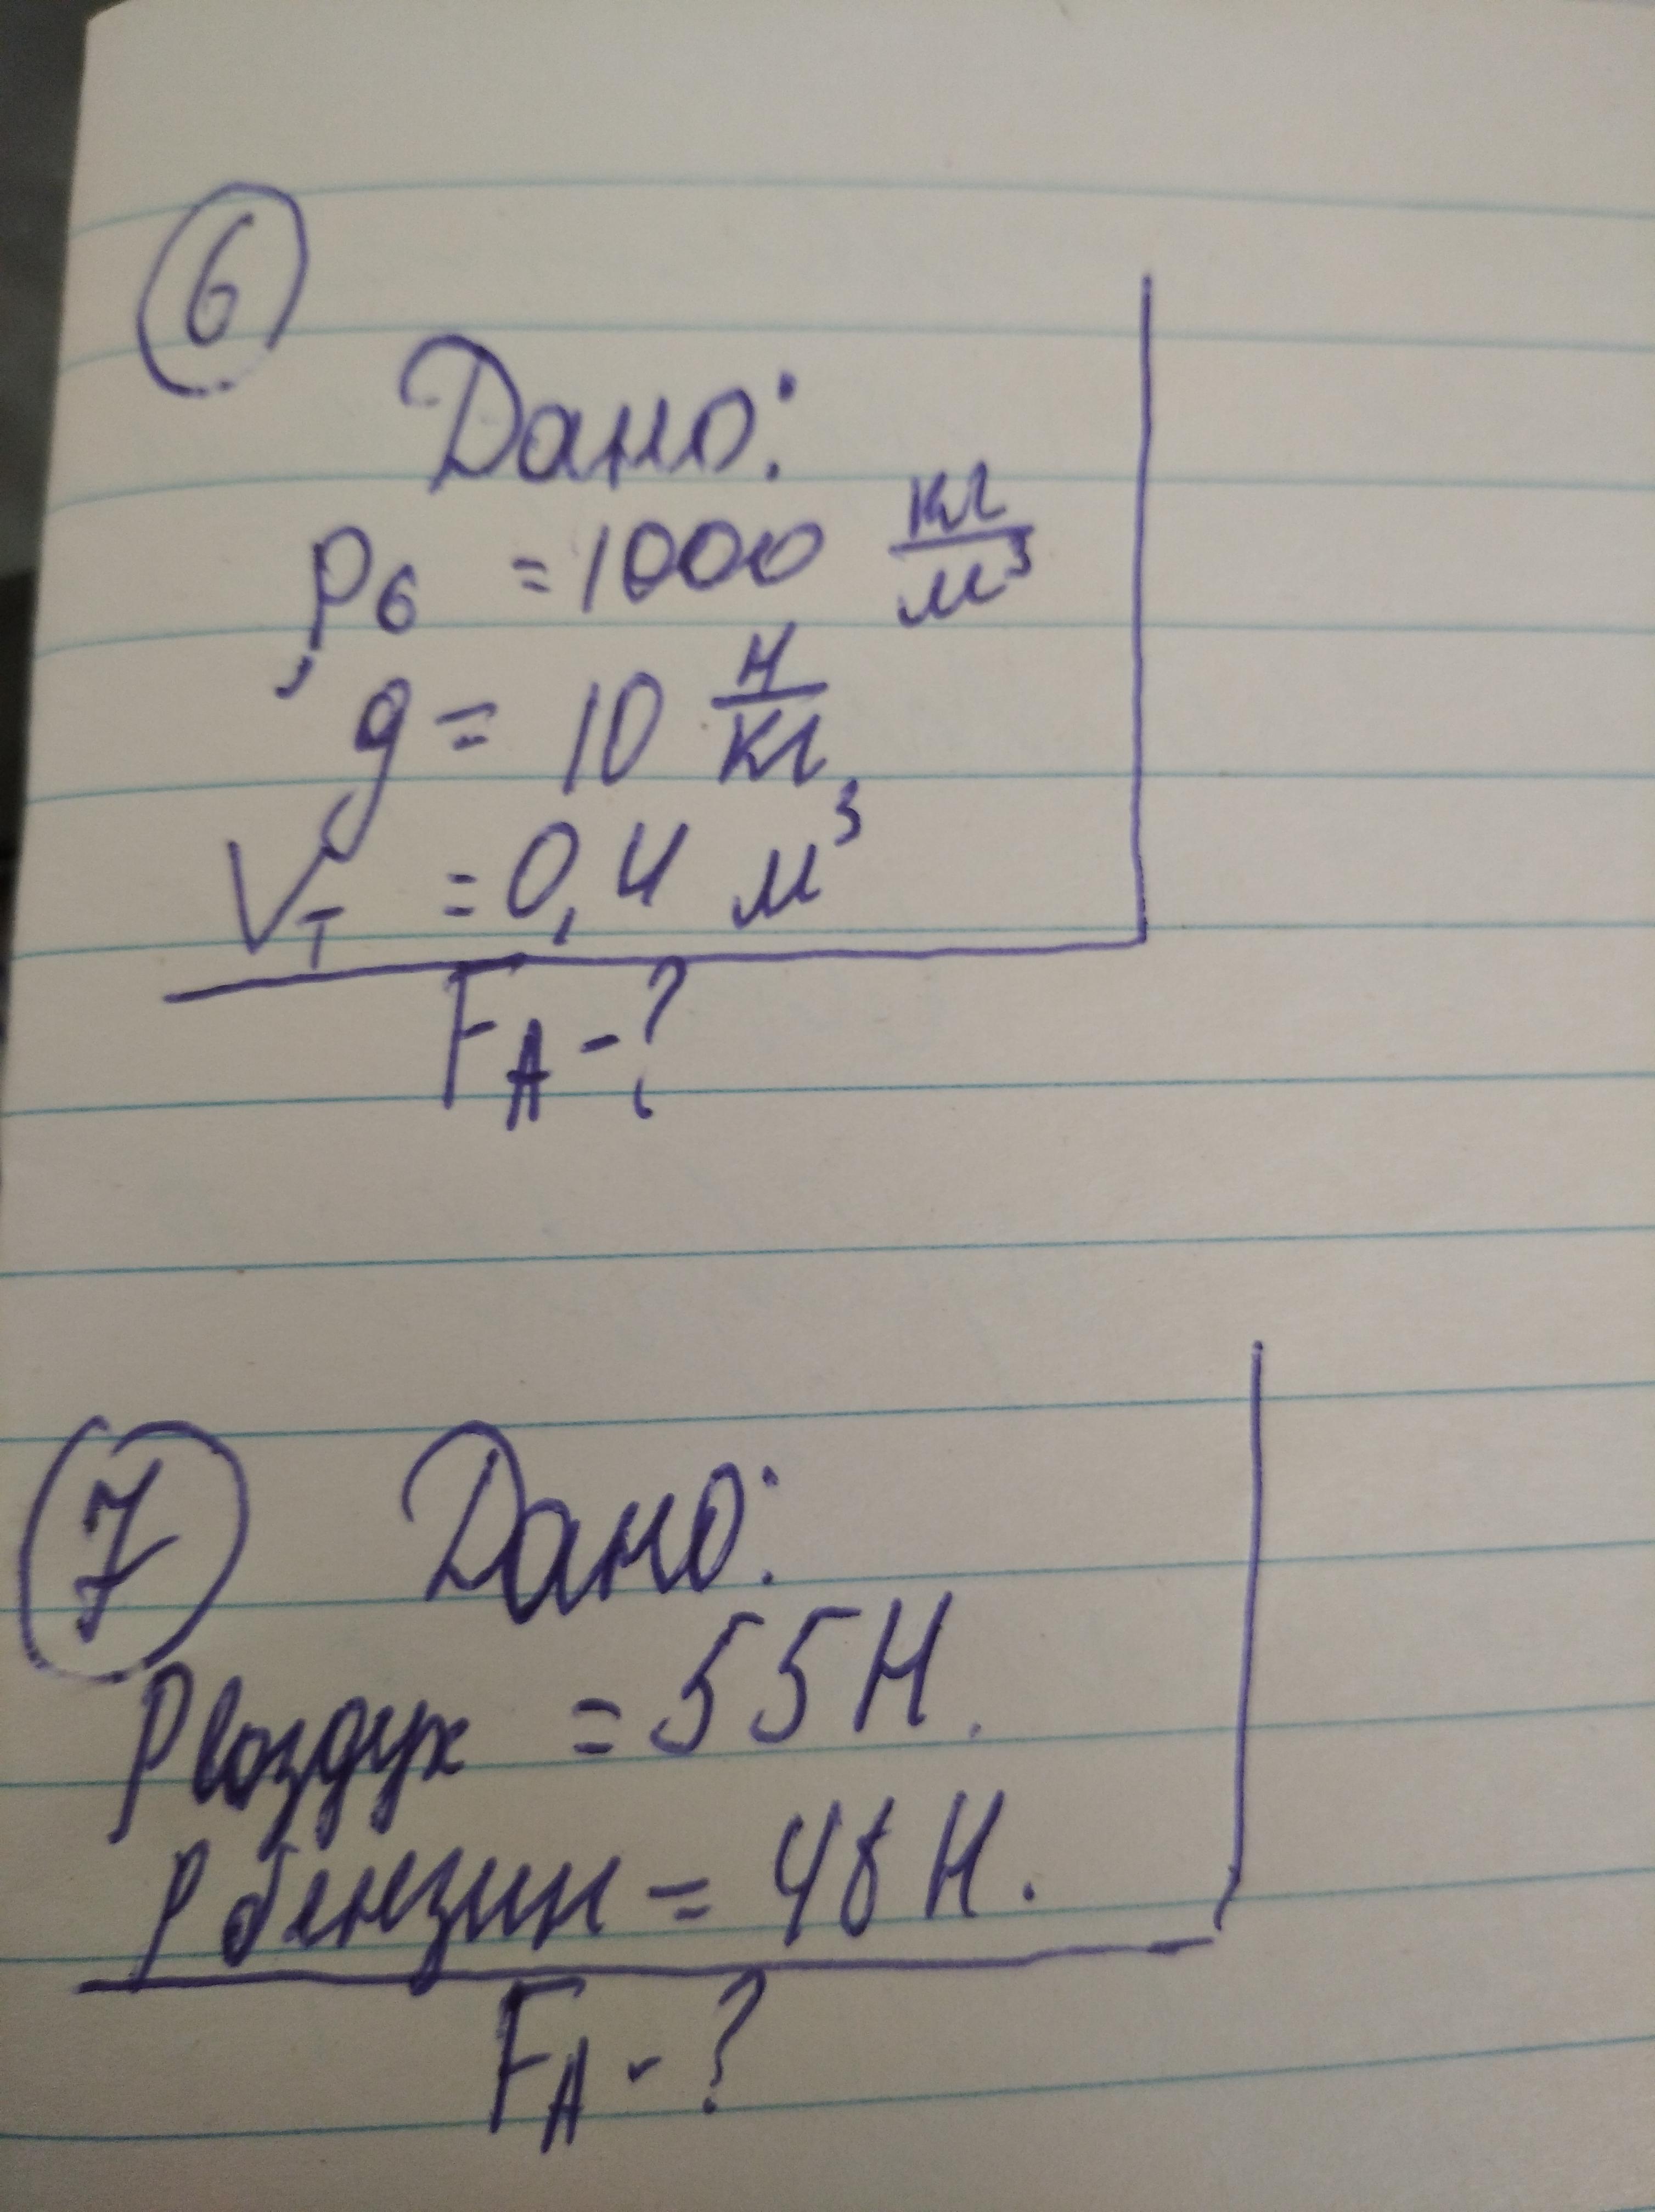 6
Дано:
ρв = 1000 кг/м³
g = 10 Н/кг
Vт = 0,4 м³
FА - ?
7
Дано:
Pвоздух = 55 Н.
Pбензин = 48 Н.
FА - ?